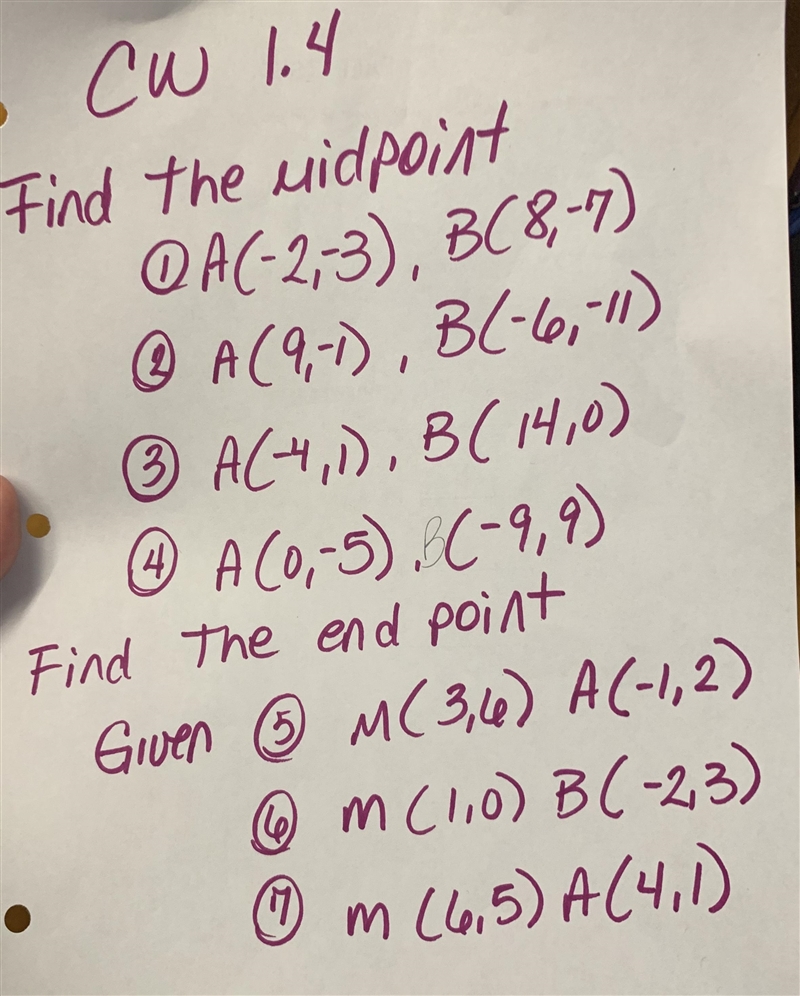 CW 1.4
Find the midpoint
① A(-2,-3), B(8,-7)
② A(9,-1), B(-6,-11)
③ A(-4,1), B(14,0)
④ A(0,-5), B(-9,9)
Find the end point
Given ⑤ M(3,6) A(-1,2)
⑥ m(1,0) B(-2,3)
⑦ m(6,5) A(4,1)